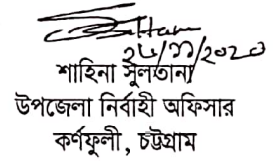 ২৫/১১/২০২০
শাহিনা সুলতানা
উপজেলা নির্বাহী অফিসার
কর্ণফুলী, চট্টগ্রাম